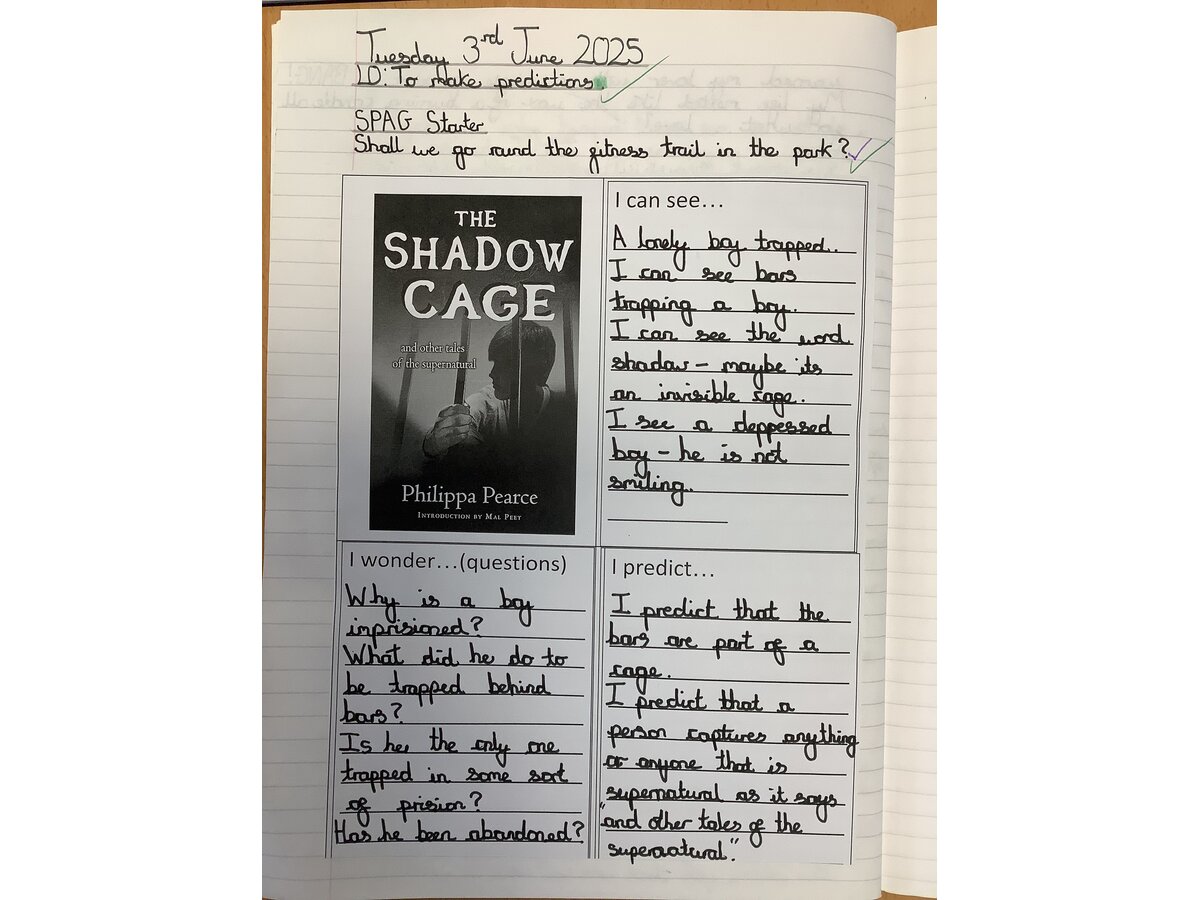 Tuesday 3rd June 2025
LO: To make predictions
SPAG Starter
Shall we go round the fitness trail in the park?
THE
SHADOW
CAGE
and other tales
of the supernatural
Philippa Pearce
INTRODUCTION BY MAL PEET
I can see...
A lonely boy trapped.
I can see bars
trapping a boy.
I can see the word
shadow - maybe its
an invisible cage.
I see a deppessed
boy - he is not
smiling.
I wonder...(questions)
Why is a boy
imprisioned?
What did he do to
be trapped behind
bars?
Is he, the only one
trapped in some sort
of prision?
Has he been abandoned?
I predict...
I predict that the
bars are part of a
cage.
I predict that a
person captures anything
or anyone that is
supernatural as it says
"and other tales of the
supernatural".